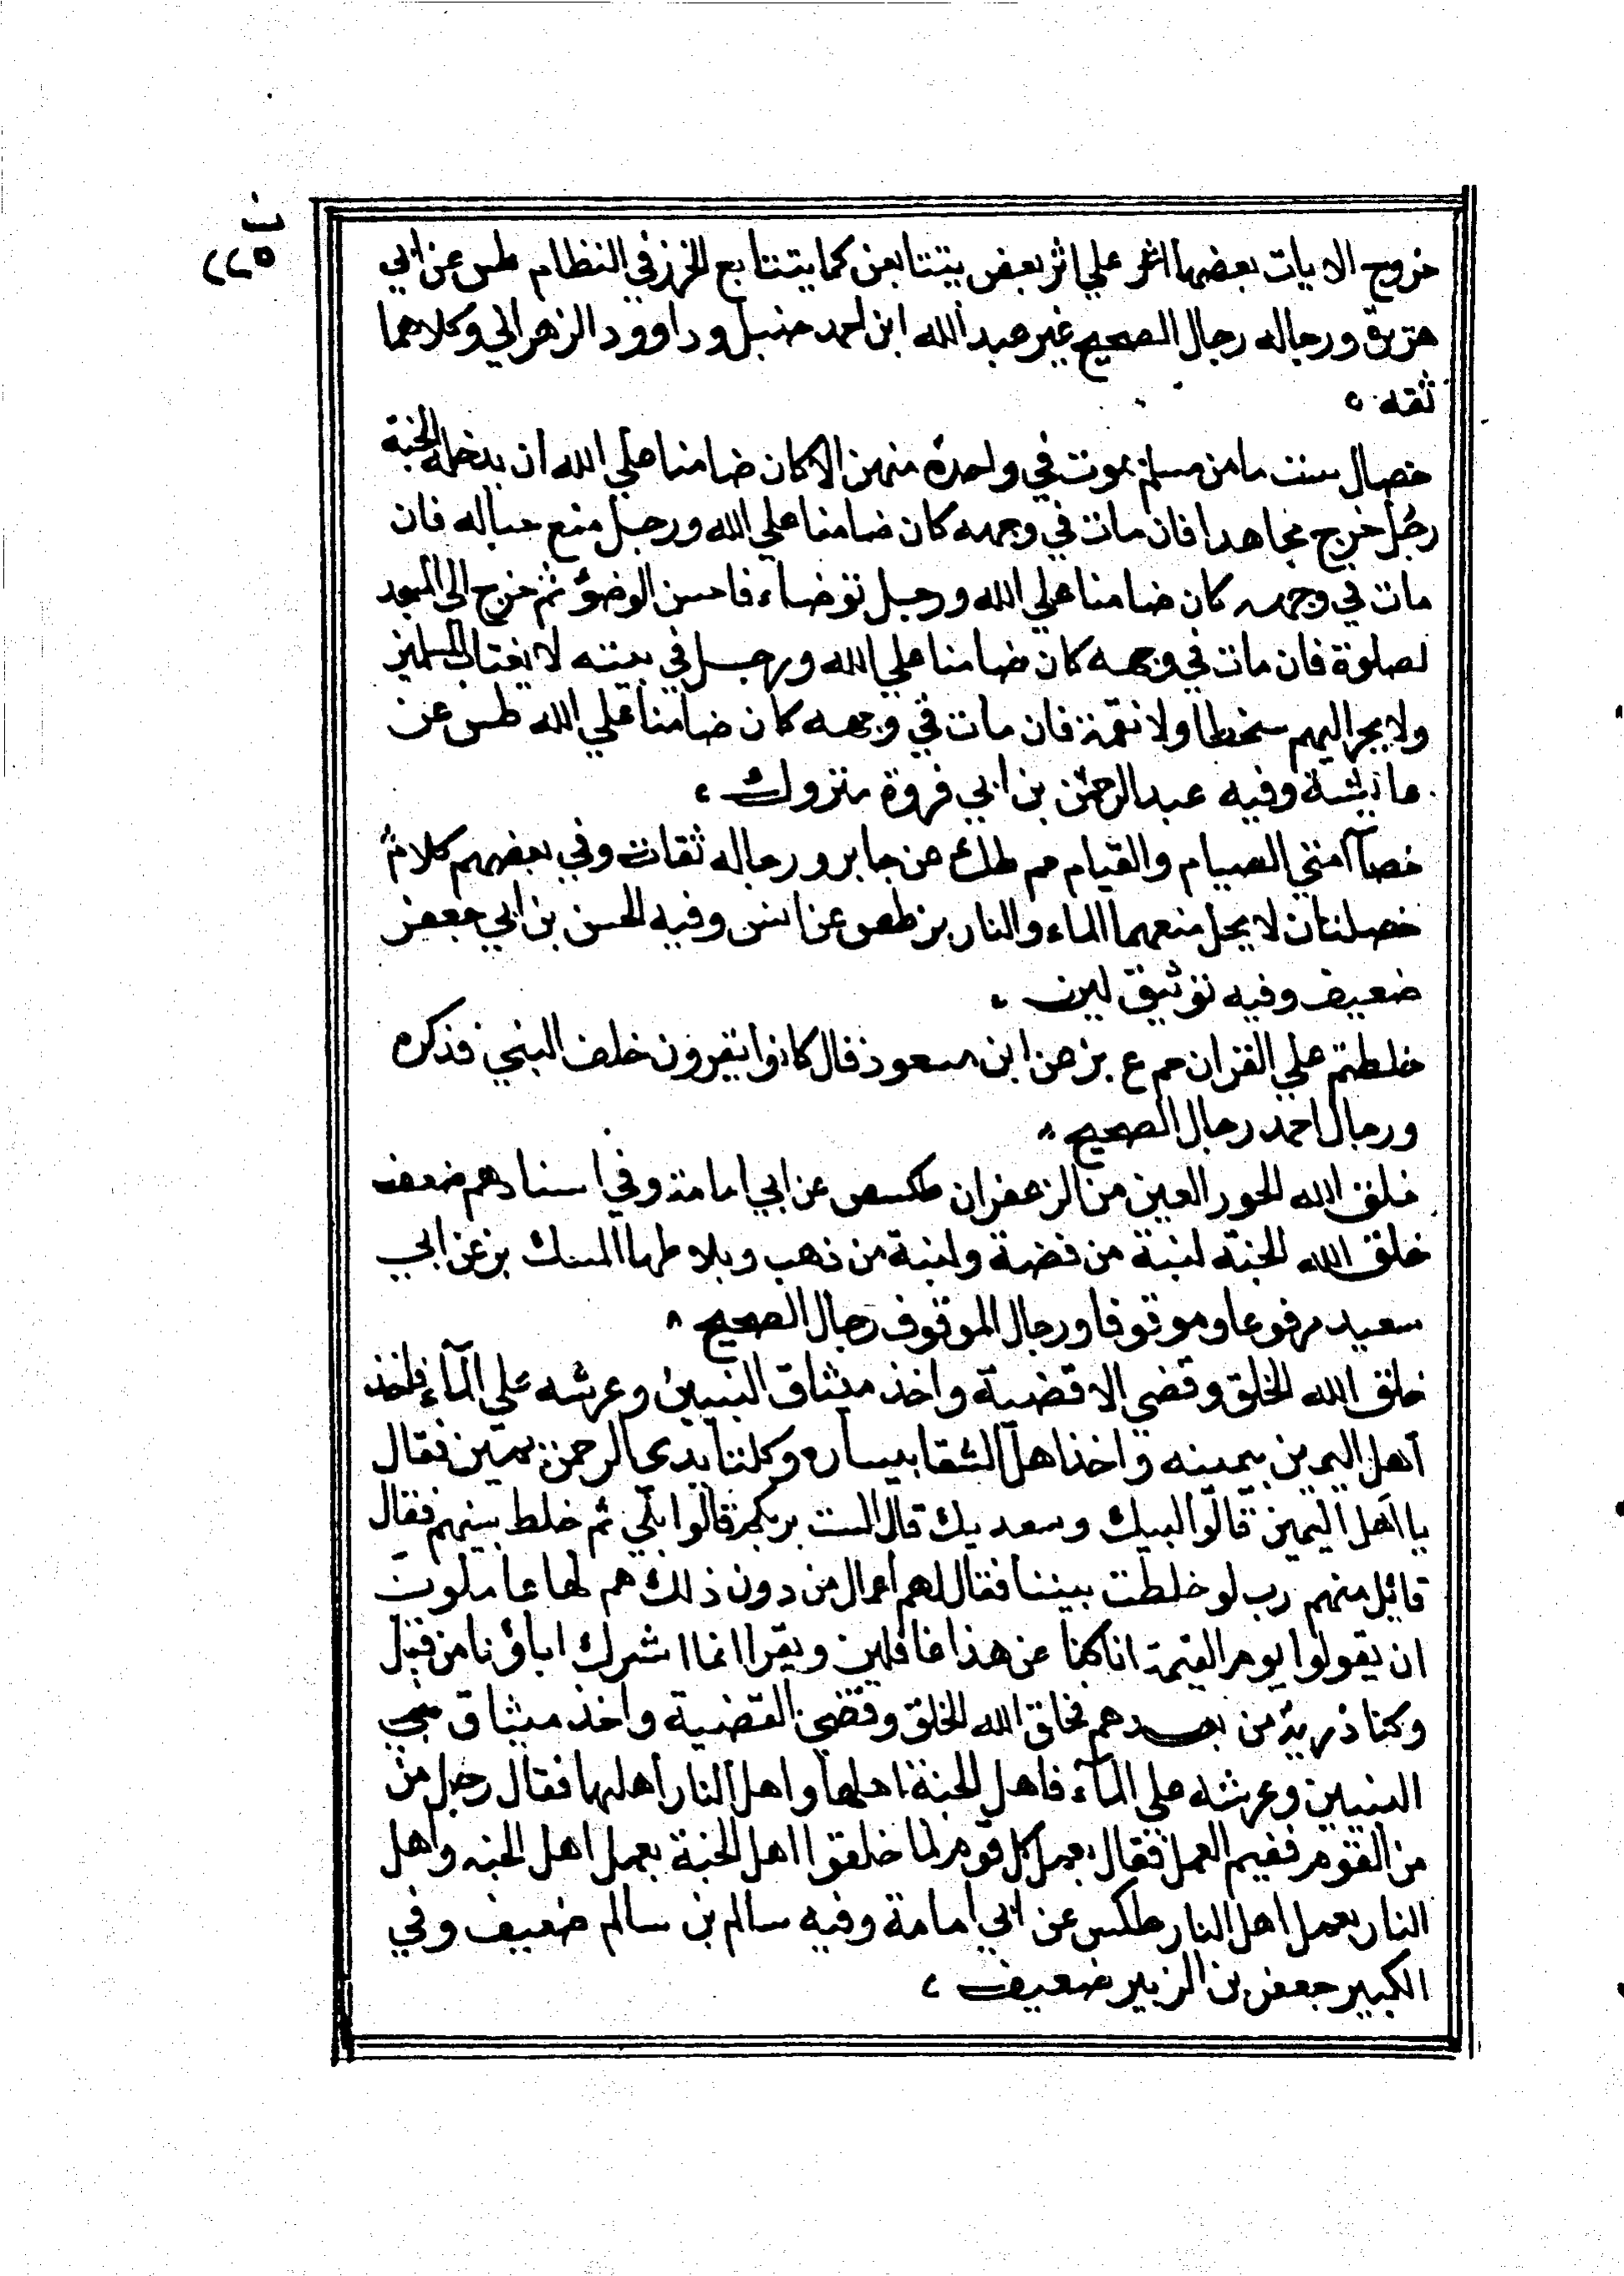 ب
٢٢٥
خروج الايات بعضها اثر علي اثر بعض يتتابعن كما يتتابع الخرز في النظام طس عن ابي
هريرة ورجاله رجال الصحيح غير عبد الله ابن احمد حنبل وداوود الزهراني وكلاهما
ثقه
خصال ست ما من مسلم يموت في واحدة منهن الا كان ضامنا علي الله ان يدخله الجنة
رجل خرج مجاهدا فان مات في وجهه كان ضامنا علي الله ورجل منع حباله فان
مات في وجهه كان ضامنا علي الله ورجل توضاء فاحسن الوضؤ ثم خرج الي المسجد
لصلوة فان مات في وجهه كان ضامنا علي الله ورجل في بيته لا يغتاب المسلمين
ولا يجر اليهم سخطا ولا نقمة فان مات في وجهه كان ضامنا علي الله طس عن
عائشة وفيه عبد الرحمن بن ابي فروة متروك
خصآ امتي الصيام والقيام حم طك عن جابر ورجاله ثقات وفي بعضهم كلام
خصلتان لا يحل منعهما الماء والنار بز طص عن انس وفيه الحسن بن ابي جعفر
ضعيف وفيه توثيق لين
خلطتم علي القران حم ع بز عن ابن مسعود قال كانوا يقرون خلف النبي فذكره
ورجال احمد رجال الصحيح
خلق الله الحور العين من الزعفران طكس عن ابي امامة وفي اسنادهم ضعف
خلق الله الجنة لبنة من فضة ولبنة من ذهب وبلاطها المسك بز عن ابي
سعيد مرفوعا وموقوفا ورجال الموقوف رجال الصحيح
خلق الله الخلق وقضي الاقضية واخذ ميثاق النبيين وعرشه علي المآء فاخذ
اهل اليمين بيمينه واخذ اهل الشقا بيساره وكلتا يدي الرحمن يمين فقال
يا اهل اليمين قالوا لبيك وسعديك قال الست بربكم قالوا بلي ثم خلط بينهم فقال
قايل منهم رب لو خلطت بيننا فقال لهم اعمال من دون ذلك هم لها عاملون
ان يقولوا يوم القيمة انا كنا عن هذا غافلين ويقرا انما اشرك اباؤنا من قبل
وكنا ذرية من بعدهم فخلق الله الخلق وقضي القضية واخذ ميثاق
النبيين وعرشه علي المآء فاهل الجنة اهلها واهل النار اهلها فقال رجل من
من القوم ففيم العمل فقال يعمل كل قوم لما خلقوا اهل الجنة بعمل اهل الجنه واهل
النار بعمل اهل النار طكس عن ابي امامة وفيه سالم بن سالم ضعيف وفي
الكبير جعفر بن الزبير ضعيف